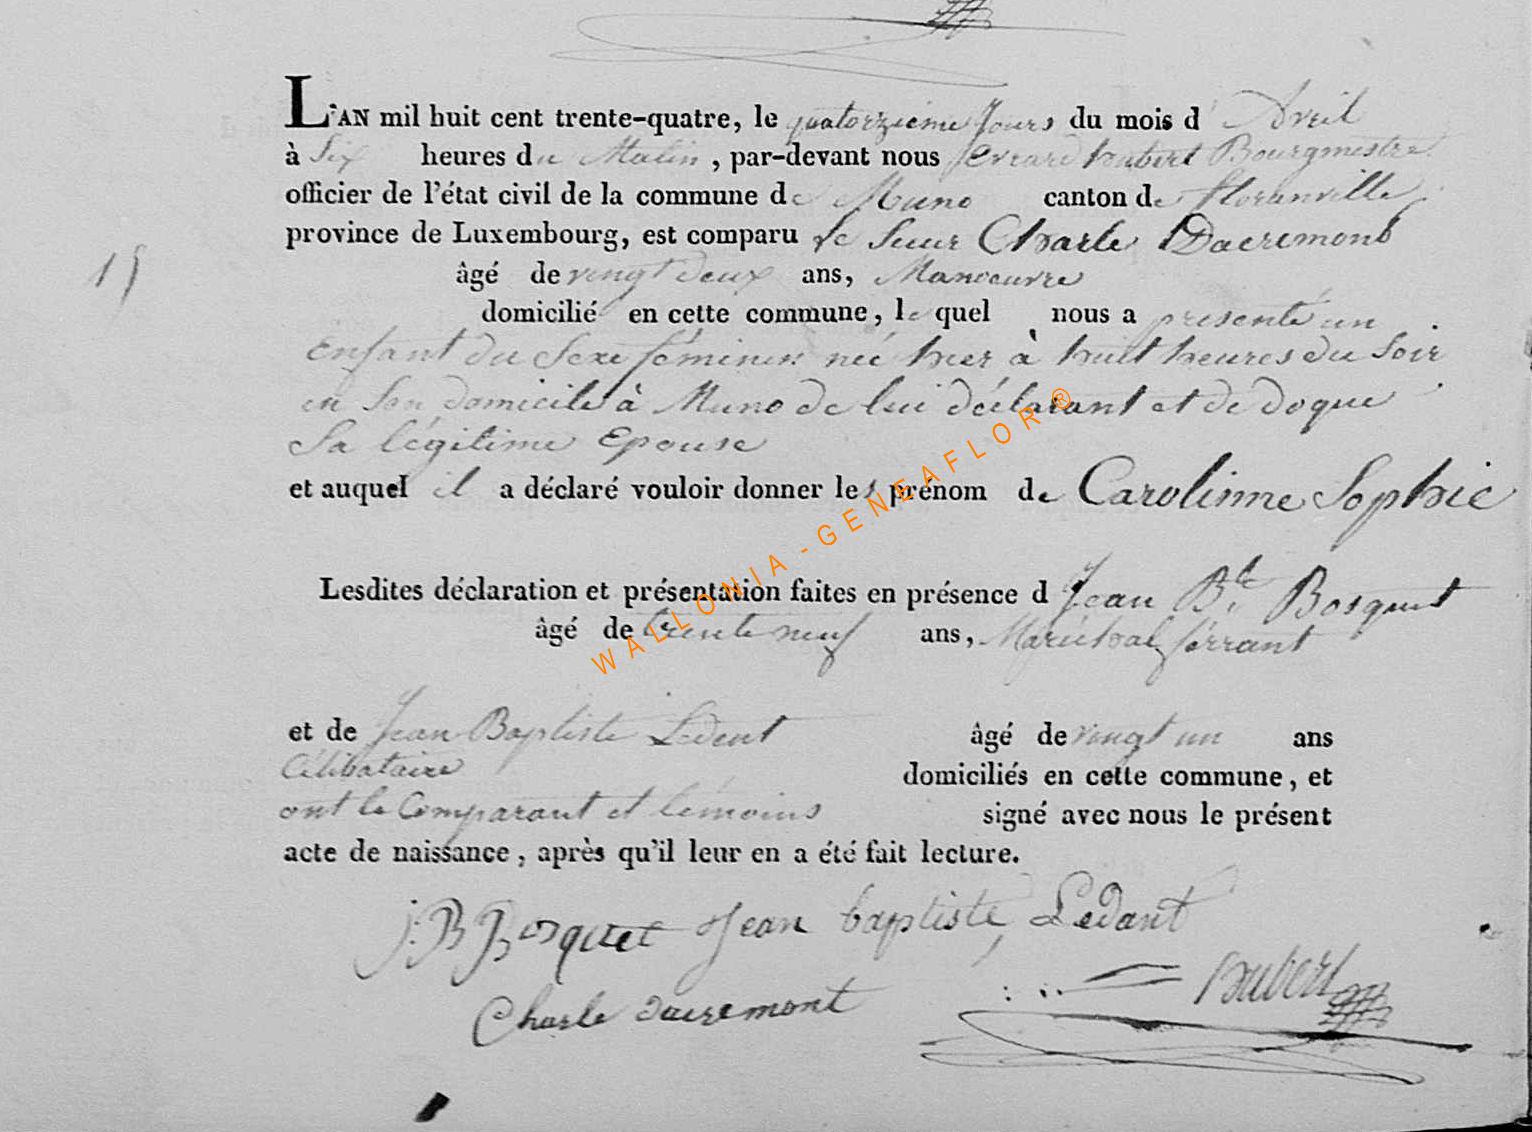 L'AN mil huit cent trente-quatre, le quatorzieme Jours du mois d' Avril
à Six heures du Matin, par-devant nous Evrard hubert Bourgmestre
officier de l'état civil de la commune de Muno canton de florenville
province de Luxembourg, est comparu Le Sieur Charle Dacremont
15
âgé de vingt deux ans, Manoeuvre
domicilié en cette commune, le quel nous a présenté un
Enfant du Sexe féminin née hier à huit heures du Soir
en Son domicile à Muno de lui déclarant et de doque
Sa légitime Epouse
et auquel il a déclaré vouloir donner les prénom de Carolinne Sophie
Lesdites déclaration et présentation faites en présence d Jean Bte Bosquet
âgé de trente neuf ans, Maréchal férrant
et de Jean Baptiste Ledent âgé de vingt un ans
Célibataire domiciliés en cette commune, et
ont le Comparant et témoins signé avec nous le présent
acte de naissance, après qu'il leur en a été fait lecture.
J B Bosquet Jean baptiste Ledant
hubert
Charle dacremont
WALLONIA-GENEAFLOR®